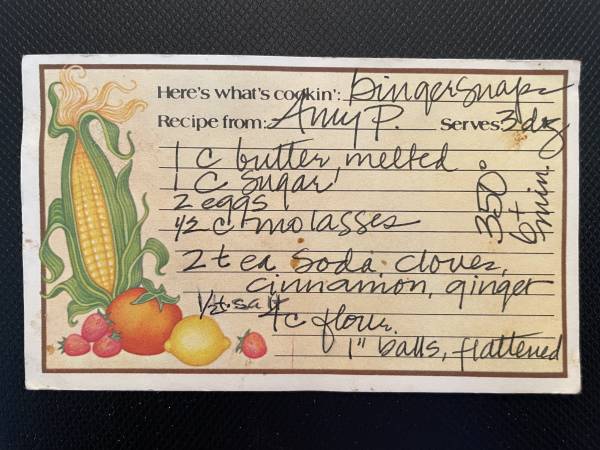 Here's what's cookin': Gingersnaps
Recipe from: Amy P. serves: 3 doz
1 c butter, melted
1 c sugar
2 eggs
1/2 c molasses
2 t ea soda, cloves,
cinnamon, ginger
1/2 t. salt
4 c flour.
1" balls, flattened
350°
6+ min.